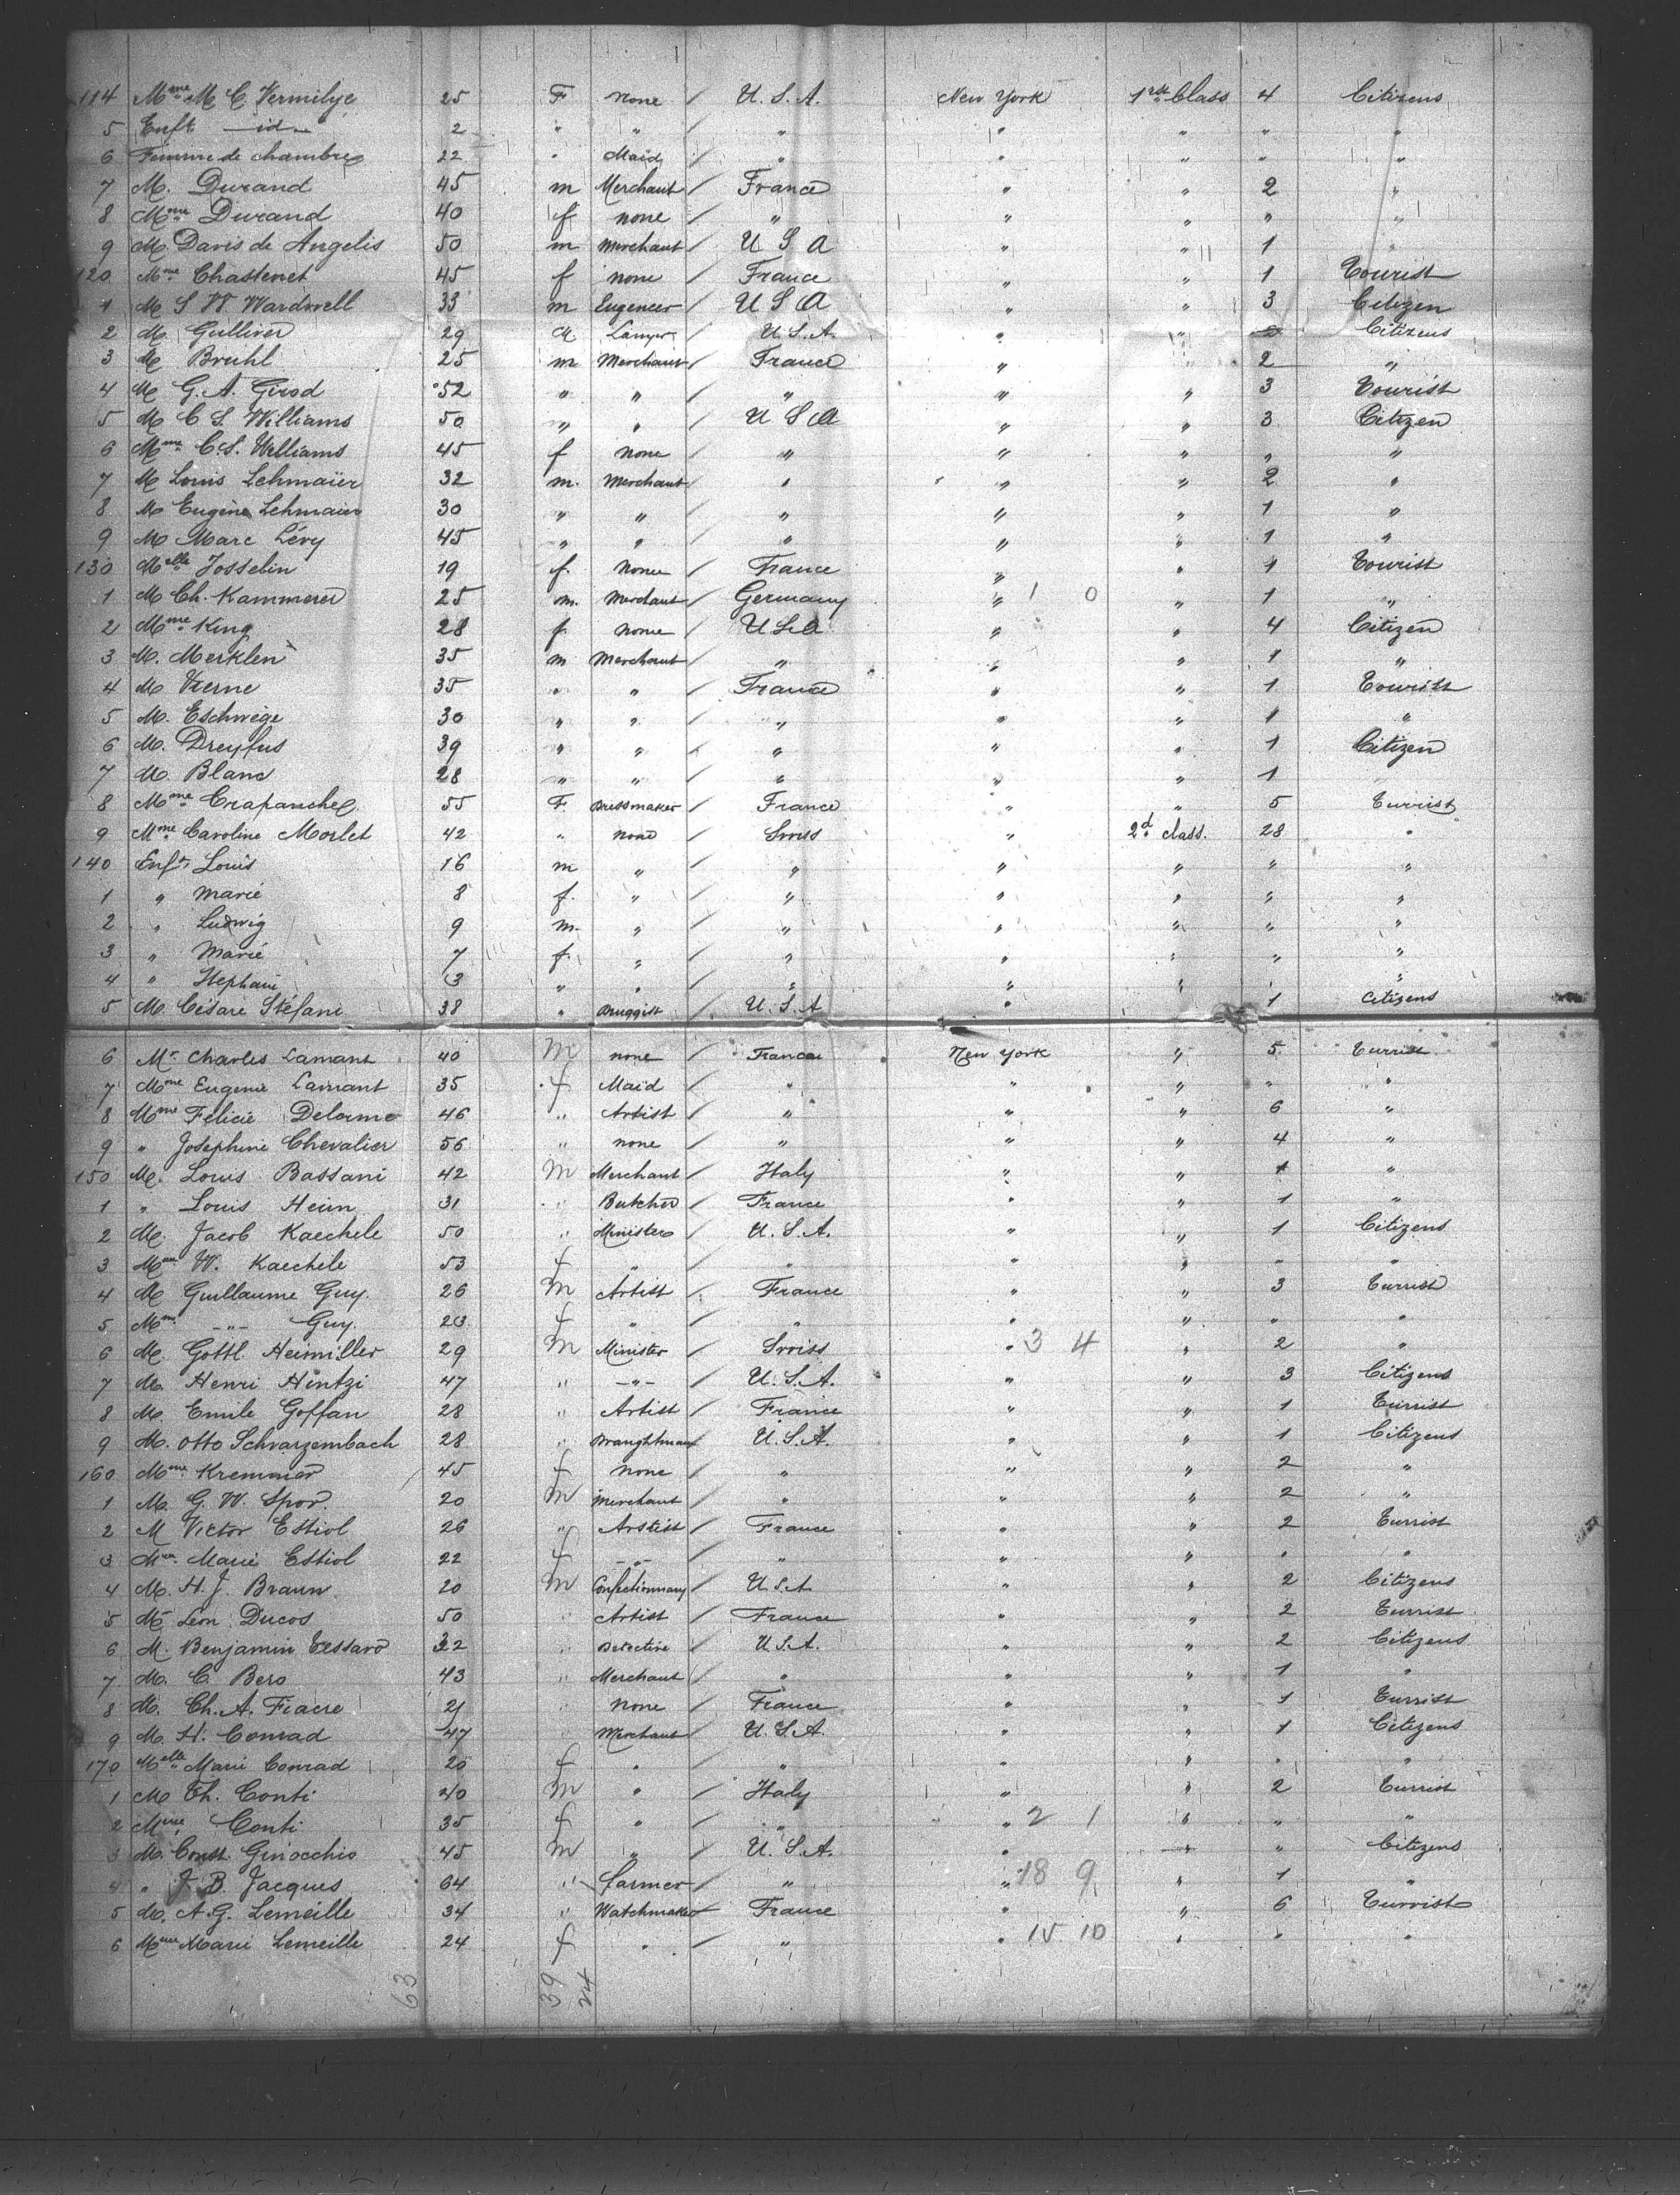 114 Mme M C Vermilye 25 F none / U. S. A. New York 1rst Class 4 Citizens
5 Enft —id— 2 " " / " " " " "
6 Femme de chambre 22 " Maid / " " " " "
7 M. Durand 45 m Merchant / France " " 2 "
8 Mme Durand 40 f none / " " " " "
9 M Davis de Angelis 50 m Merchant / U S A " " 1 "
120 Mme Chastenet 45 f none / France " " 1 Tourist
1 M S W Wardwell 33 m Eugeneer / U S A " " 3 Citizen
2 M Gulliver 29 M Lawyer / U.S.A. " " 2 Citizens
3 M Bruhl 25 m Merchant / France " " 2 "
4 M G. A. Girod 52 " " / " " " 3 Tourist
5 M C S. Williams 50 " " / U S A " " 3 Citizen
6 Mme C. S. Williams 45 f none / " " " " "
7 M Louis Lehmaïer 32 m. Merchant / " " " 2 "
8 M Eugène Lehmaier 30 " " / " " " 1 "
9 M Marc Lévy 45 " " / " " " 1 "
130 Melle Josselin 19 f. None / France " " 1 Tourist
1 M Ch. Kammerer 25 m. Merchant / Germany " 1 0 " 1 "
2 Mme King 28 f none / U S A " " 4 Citizen
3 M. Merklen 35 m Merchant / " " " 1 "
4 M Verne 35 " " / France " " 1 Tourist
5 M. Eschwège 30 " " / " " " 1 "
6 M. Dreyfus 39 " " / " " " 1 Citizen
7 M. Blanc 28 " " / " " " 1
8 Mme Crapanche 55 F. Dressmaker / France " " 5 Turrist
9 Mme Caroline Morlet 42 " none / Swiss " 2d class. 28 "
140 Enfts Louis 16 m " / " " " " "
1 " Marie 8 f. " / " " " " "
2 " Ludwig 9 m. " / " " " " "
3 " Marie 7 f. " / " " " " "
4 " Stephani 3 " " / " " " " "
5 M. Césare Stéfani 38 " Druggist / U. S. A " 1 Citizens
6 Mr Charles Lamant 40 M none / France New York " 5 Turrist
7 Mme Eugenie Lamant 35 f Maid / " " " " "
8 Mme Félicie Delorme 46 " Artist / " " " 6 "
9 " Josephine Chevalier 56 " none / " " " 4 "
150 M. Louis Bassani 42 M Merchant / Italy " " 1 "
1 " Louis Heim 31 " Butcher / France " " 1 "
2 M. Jacob Kaechele 50 " Minister / U. S. A. " " 1 Citizens
3 Mme W. Kaechele 53 f " / " " " " "
4 M Guillaume Guy. 26 M Artist / France " " 3 Turrist
5 Mme —"— Guy. 23 f " / " " " " "
6 M. Gottl. Heimiller 29 M Minister / Swiss " 3 4 " 2 "
7 M. Henri Hintzi 47 " —"— / U. S. A. " " 3 Citizens
8 M. Emile Goffan 28 " Artist / France " " 1 Turrist
9 M. Otto Schvarzembach 28 " Draughtman / U. S. A. " " 1 Citizens
160 Mme Kremmer 45 f none / " " " 2 "
1 M. G. W. Spor. 20 M Merchant / " " " 2 "
2 M Victor Estiol 26 " Arstist / France " " 2 Turrist
3 Mme Marie Estiol 22 f —"— / " " " " "
4 M. H. J. Braun 20 M Confectionnary / U. S. A " " 2 Citizens
5 Mr Léon Ducos 50 " Artist / France " " 2 Turrist
6 M. Benjamin Tessaro 32 " Detective / U. S. A. " " 2 Citizens
7 M. C. Bero 43 " Merchant / " " " 1 "
8 M. Ch. A. Fiacre 21 " none / France " " 1 Turrist
9 M. H. Conrad 47 " Merchant / U. S. A. " " 1 Citizens
170 Melle Marie Conrad 20 f " / " " " " "
1 M Th. Conti 40 M " / Italy " " 2 Turrist
2 Mme Conti 35 f " / " " 2 1 " " "
3 M. Const. Ginocchio 45 M " / U. S. A. " " " Citizens
4 " J. B. Jacques 64 " Farmer / " " 18 9 " 1 "
5 M. A. G. Lemeille 34 " Watchmaker / France " " 6 Turrist
6 Mme Marie Lemeille 24 f " / " " 15 10 " " "
63 39 24